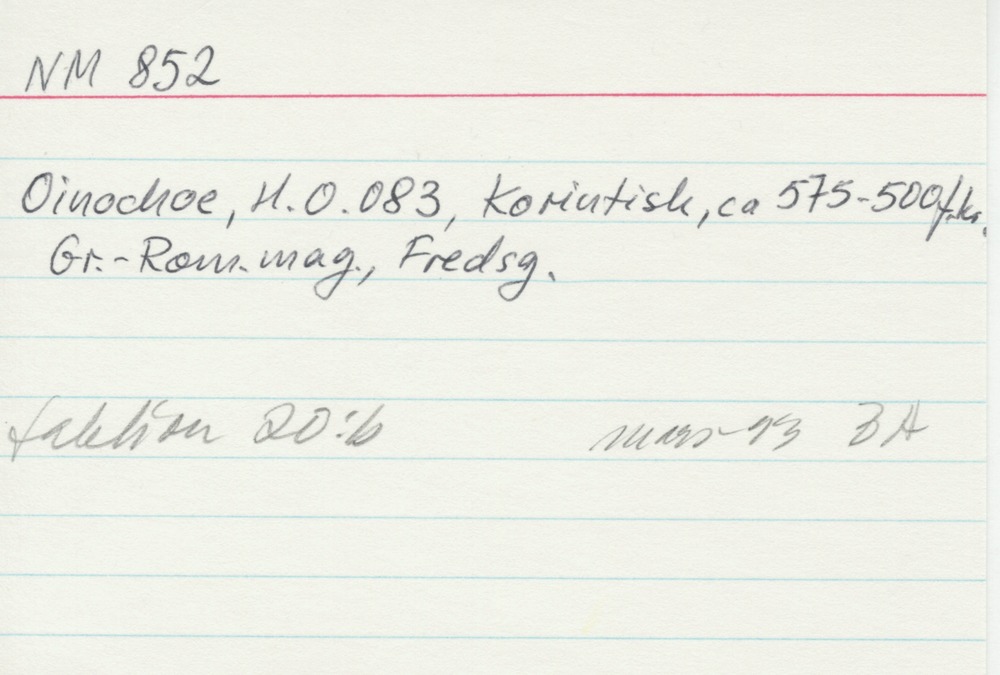 NM 852
Oinochoe, H.O.083, Korintisk, ca 575-500 f.kr.
Gr.-Rom.mag., Fredsg.
sektion 20:b mars-93 BA